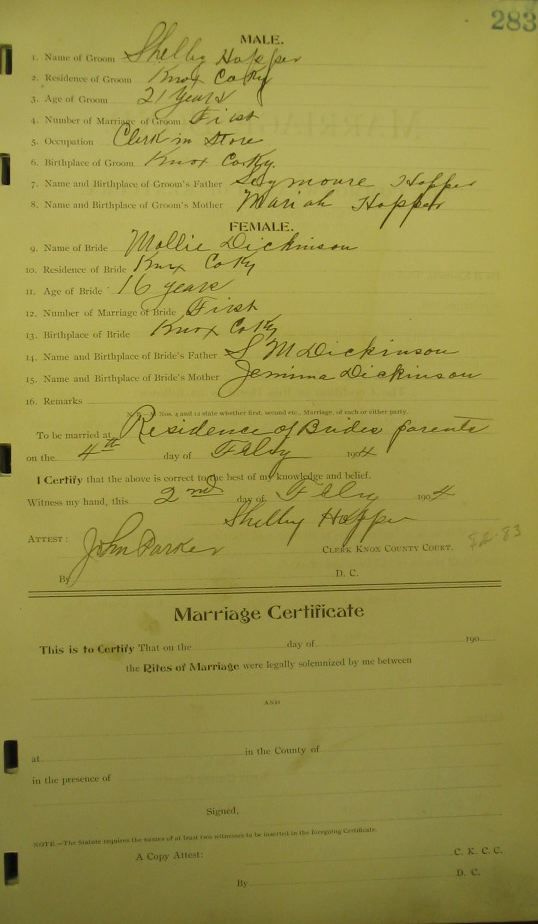 283
MALE.
1. Name of Groom Shelby Hopper
2. Residence of Groom Knox Co Ky
3. Age of Groom 21 years
4. Number of Marriage of Groom First
5. Occupation Clerk in Store
6. Birthplace of Groom Knox Co Ky.
7. Name and Birthplace of Groom's Father Seymoure Hopper
8. Name and Birthplace of Groom's Mother Mariah Hopper
FEMALE.
9. Name of Bride Mollie Dickinson
10. Residence of Bride Knox Co Ky
11. Age of Bride 16 years
12. Number of Marriage of Bride First
13. Birthplace of Bride Knox Co Ky
14. Name and Birthplace of Bride's Father S M Dickinson
15. Name and Birthplace of Bride's Mother Jemima Dickinson
16. Remarks
N. B.—In Nos. 4 and 12 state whether first, second etc., Marriage, of each or either party.
To be married at Residence of Brides parents
on the 4th day of Feby 1904
I Certify that the above is correct to the best of my knowledge and belief.
Witness my hand, this 2nd day of Feby 1904
Shelby Hopper
ATTEST: John Parker CLERK KNOX COUNTY COURT.
82-83
By D. C.
Marriage Certificate
This is to Certify That on the day of 190
the Rites of Marriage were legally solemnized by me between
AND
at in the County of
in the presence of
Signed,
NOTE.—The Statute requires the names of at least two witnesses to be inserted in the foregoing Certificate.
A Copy Attest: C. K. C. C.
By D. C.